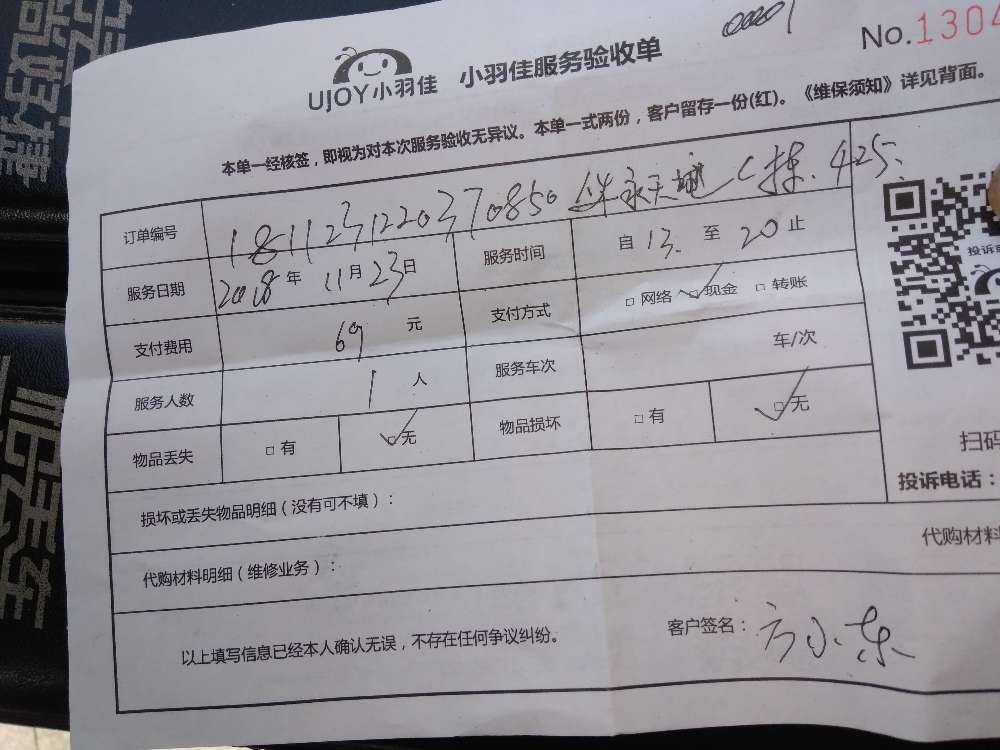 00001
No.1304
UJOY小羽佳 小羽佳服务验收单
本单一经核签，即视为对本次服务验收无异议。本单一式两份，客户留存一份(红)。《维保须知》详见背面。
订单编号 1811231220370850 永天 C栋.425.
服务日期 2018年11月23日 服务时间 自13.至20止
支付费用 69元 支付方式 □网络 □现金 □转账
服务人数 1人 服务车次 车/次
物品丢失 □有 □无 物品损坏 □有 □无
损坏或丢失物品明细（没有可不填）：
代购材料明细（维修业务）： 代购材料
以上填写信息已经本人确认无误，不存在任何争议纠纷。 客户签名：方小东
投诉
扫码
投诉电话：